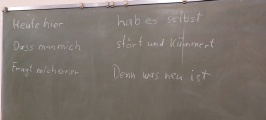 Heute hier
Dass man mich
Fragt mich einer
hab es selbst
stört und kümmert
Denn was neu ist